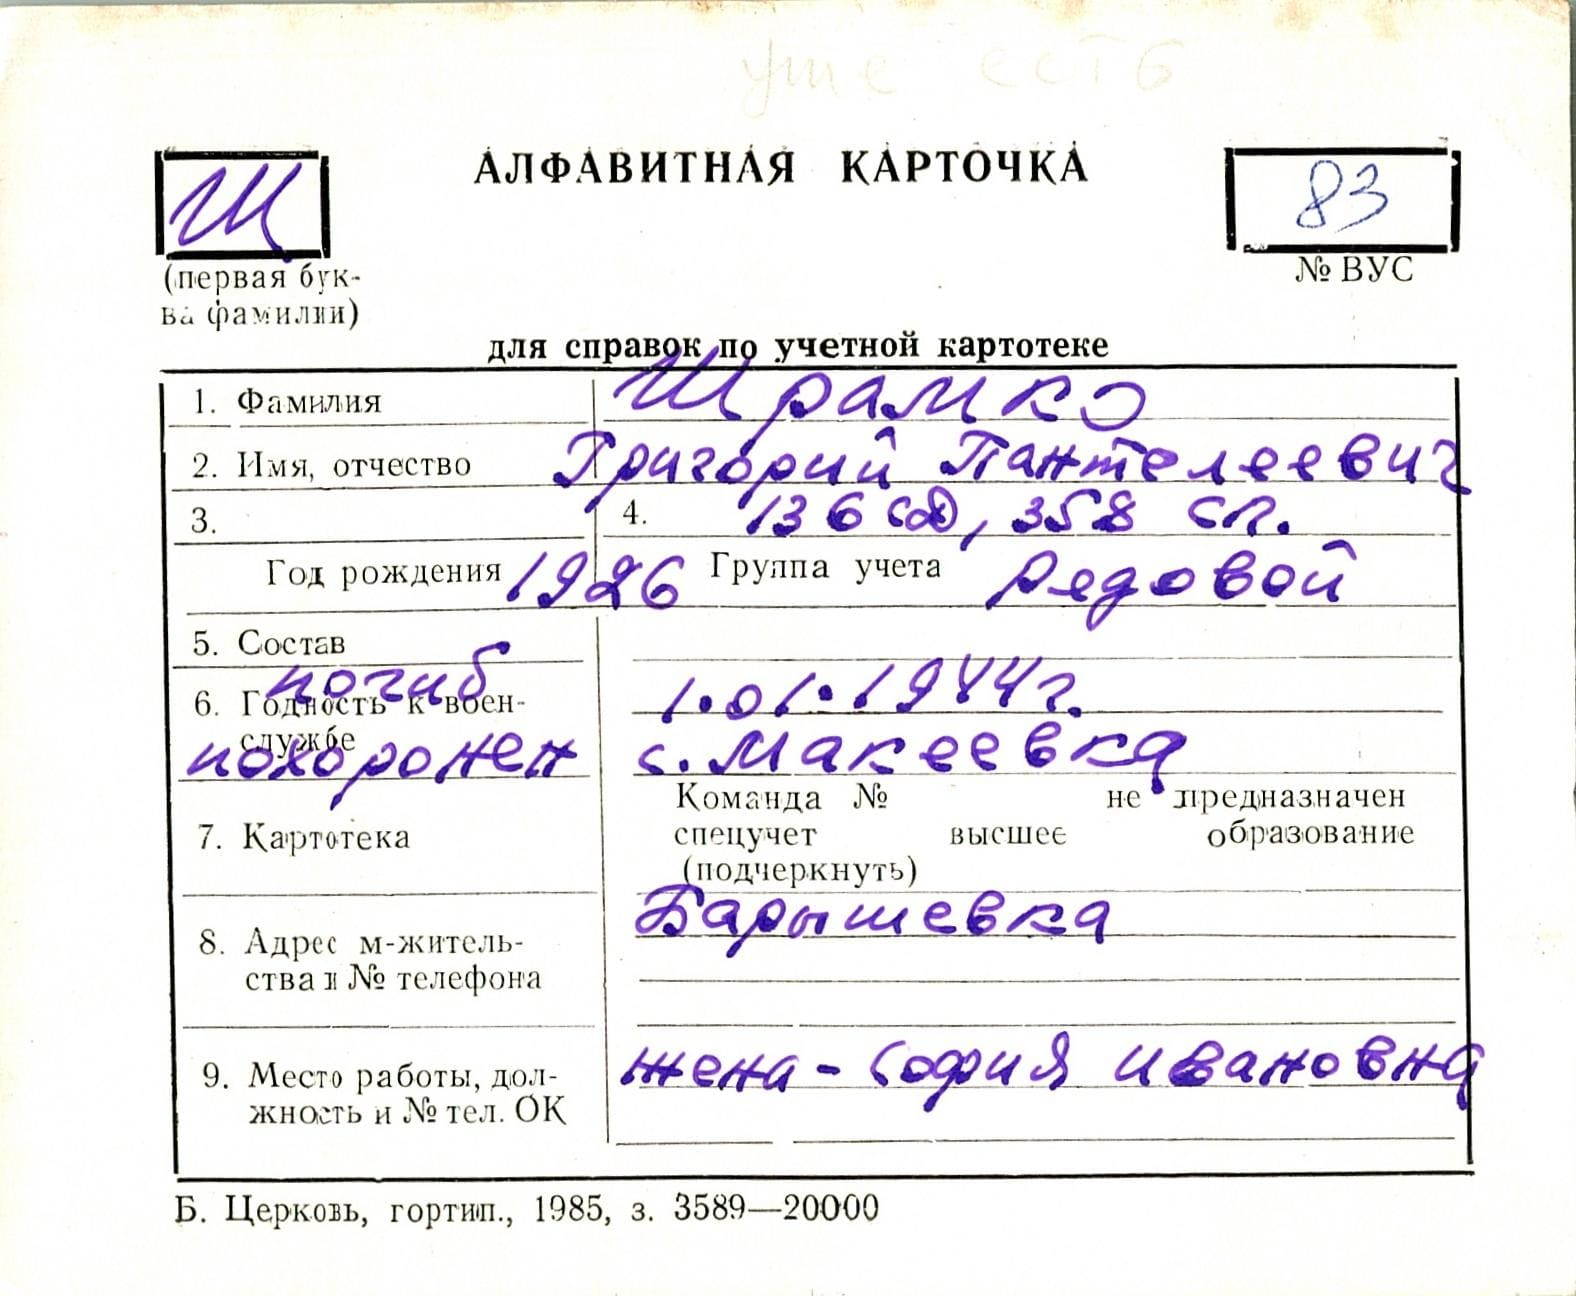 уже есть
Ш
АЛФАВИТНАЯ КАРТОЧКА
83
(первая бук-
ва фамилии)
№ ВУС
для справок по учетной картотеке
1. Фамилия Шрамко
2. Имя, отчество Григорий Пантелеевич
3. 4. 136 сд, 358 сп.
Год рождения 1926 Группа учета Рядовой
5. Состав
погиб 1.01.1944г.
6. Годность к воен-
службе
похоронен с. Макеевка
Команда № не предназначен
7. Картотека спецучет высшее образование
(подчеркнуть)
Барышевка
8. Адрес м-житель-
ства и № телефона
жена - София Ивановна
9. Место работы, дол-
жность и № тел. ОК
Б. Церковь, гортип., 1985, з. 3589—20000